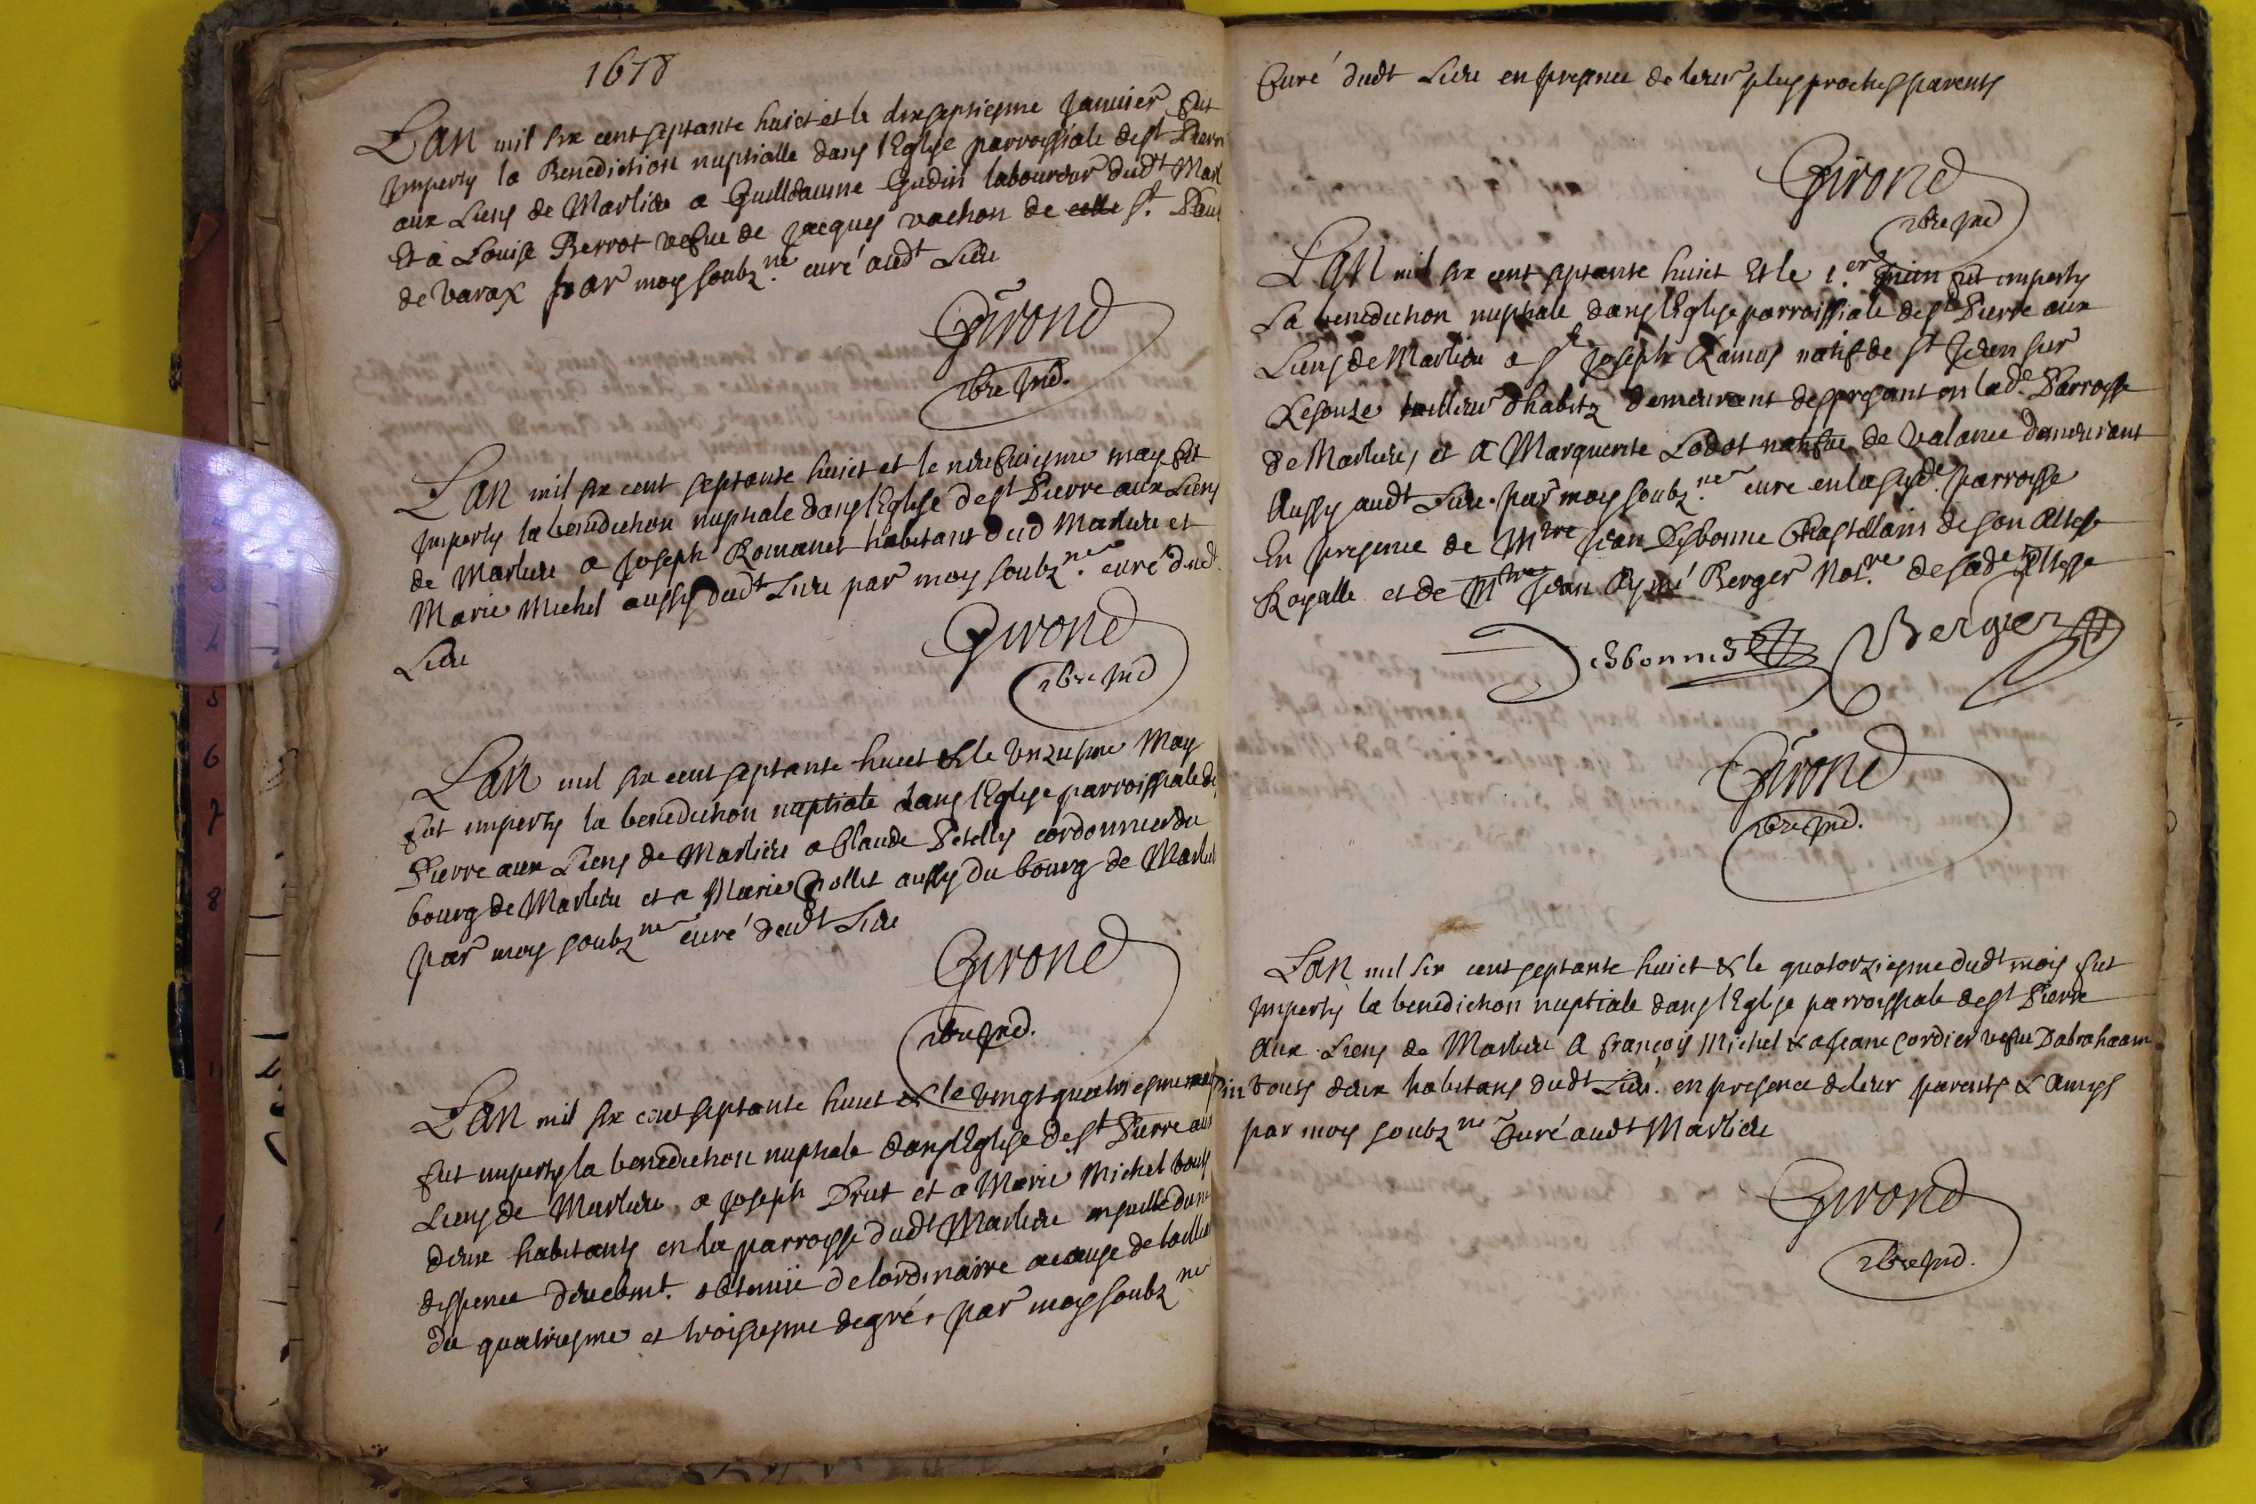 1678
L'an mil six cent septante huict et le dixseptiesme Janvier fut
Imperty la Benediction nuptialle dans l'Eglise parrossiale de st Pierre
aux Liens de Marlieu a Guillaume Gudin laboureur dudt Marl
Et a Louise Perrot vefue de Jacques vachon de celle st. Paul
de varax par moy soubz.né curé audt Lieu
Girond
L'an mil six cent septante huict et le neufuiesme may fut
Imperty la benediction nuptiale dans l'Eglise de st Pierre aux Liens
de Marlieu a Joseph Romanet habitant dud Marlieu et
Marie Michel aussy dudt Lieu par moy soubz.né curé dudt
Lieu
Girond
L'an mil six cent septante huict & le unziesme May
fut imperty la benediction nuptiale dans l'Eglise parroissiale de
Pierre aux Liens de Marlieu a Claude Petelly cordonnier du
bourg de Marlieu et a Marie Collet aussy du bourg de Marlieu
par moy soubz.né curé deudt Lieu
Girond
L'an mil six cent septante huict & le vingt quatriesme may
fut imperty la benediction nuptiale dans l'Eglise de st Pierre aux
Liens de Marlieu a Joseph Prut et a Marie Michel touts
deux habitants en la parroisse dudt Marlieu ensuitte dune
dispence deuebmt. obtenüe de lordinaire a cause de
du quatriesme et troisiesme degré, par moy soubz.né
Curé dudt Lieu en presence de leur plus proches parents
Girond
L'an mil six cent septante huict Et le 1.er Juin fut imperty
La benediction nuptiale dans l'Eglise parroissiale de st Pierre aux
Liens de Marlieu a st Joseph Ramus natif de st Jean sur
tailleur d'habitz demeurant des present en lade. Parroisse
de Marlieu, et a Marguerite Lodot natifue de valance demeurant
Aussy audt Lieu. par moy soubz.né curé en la susde. parroisse
En presence de Mtre Jean Desbonne Chastellain de son Altesse
Royalle et de Mtre Jean Aymé Berger Not.re de sade Altesse
Desbonne Bergier
Girond
L'an mil six cent septante huict & le quatorziesme dudt mois fut
Imperty la benediction nuptiale dans l'Eglise parroissiale de st Pierre
aux Liens de Marlieu a francois Michel & a Jeane Cordier vefue Dabrahaam
touts deux habitans dudt Lieu. en presence de leur parents & amys
par moy soubz.né Curé audt Marlieu
Girond